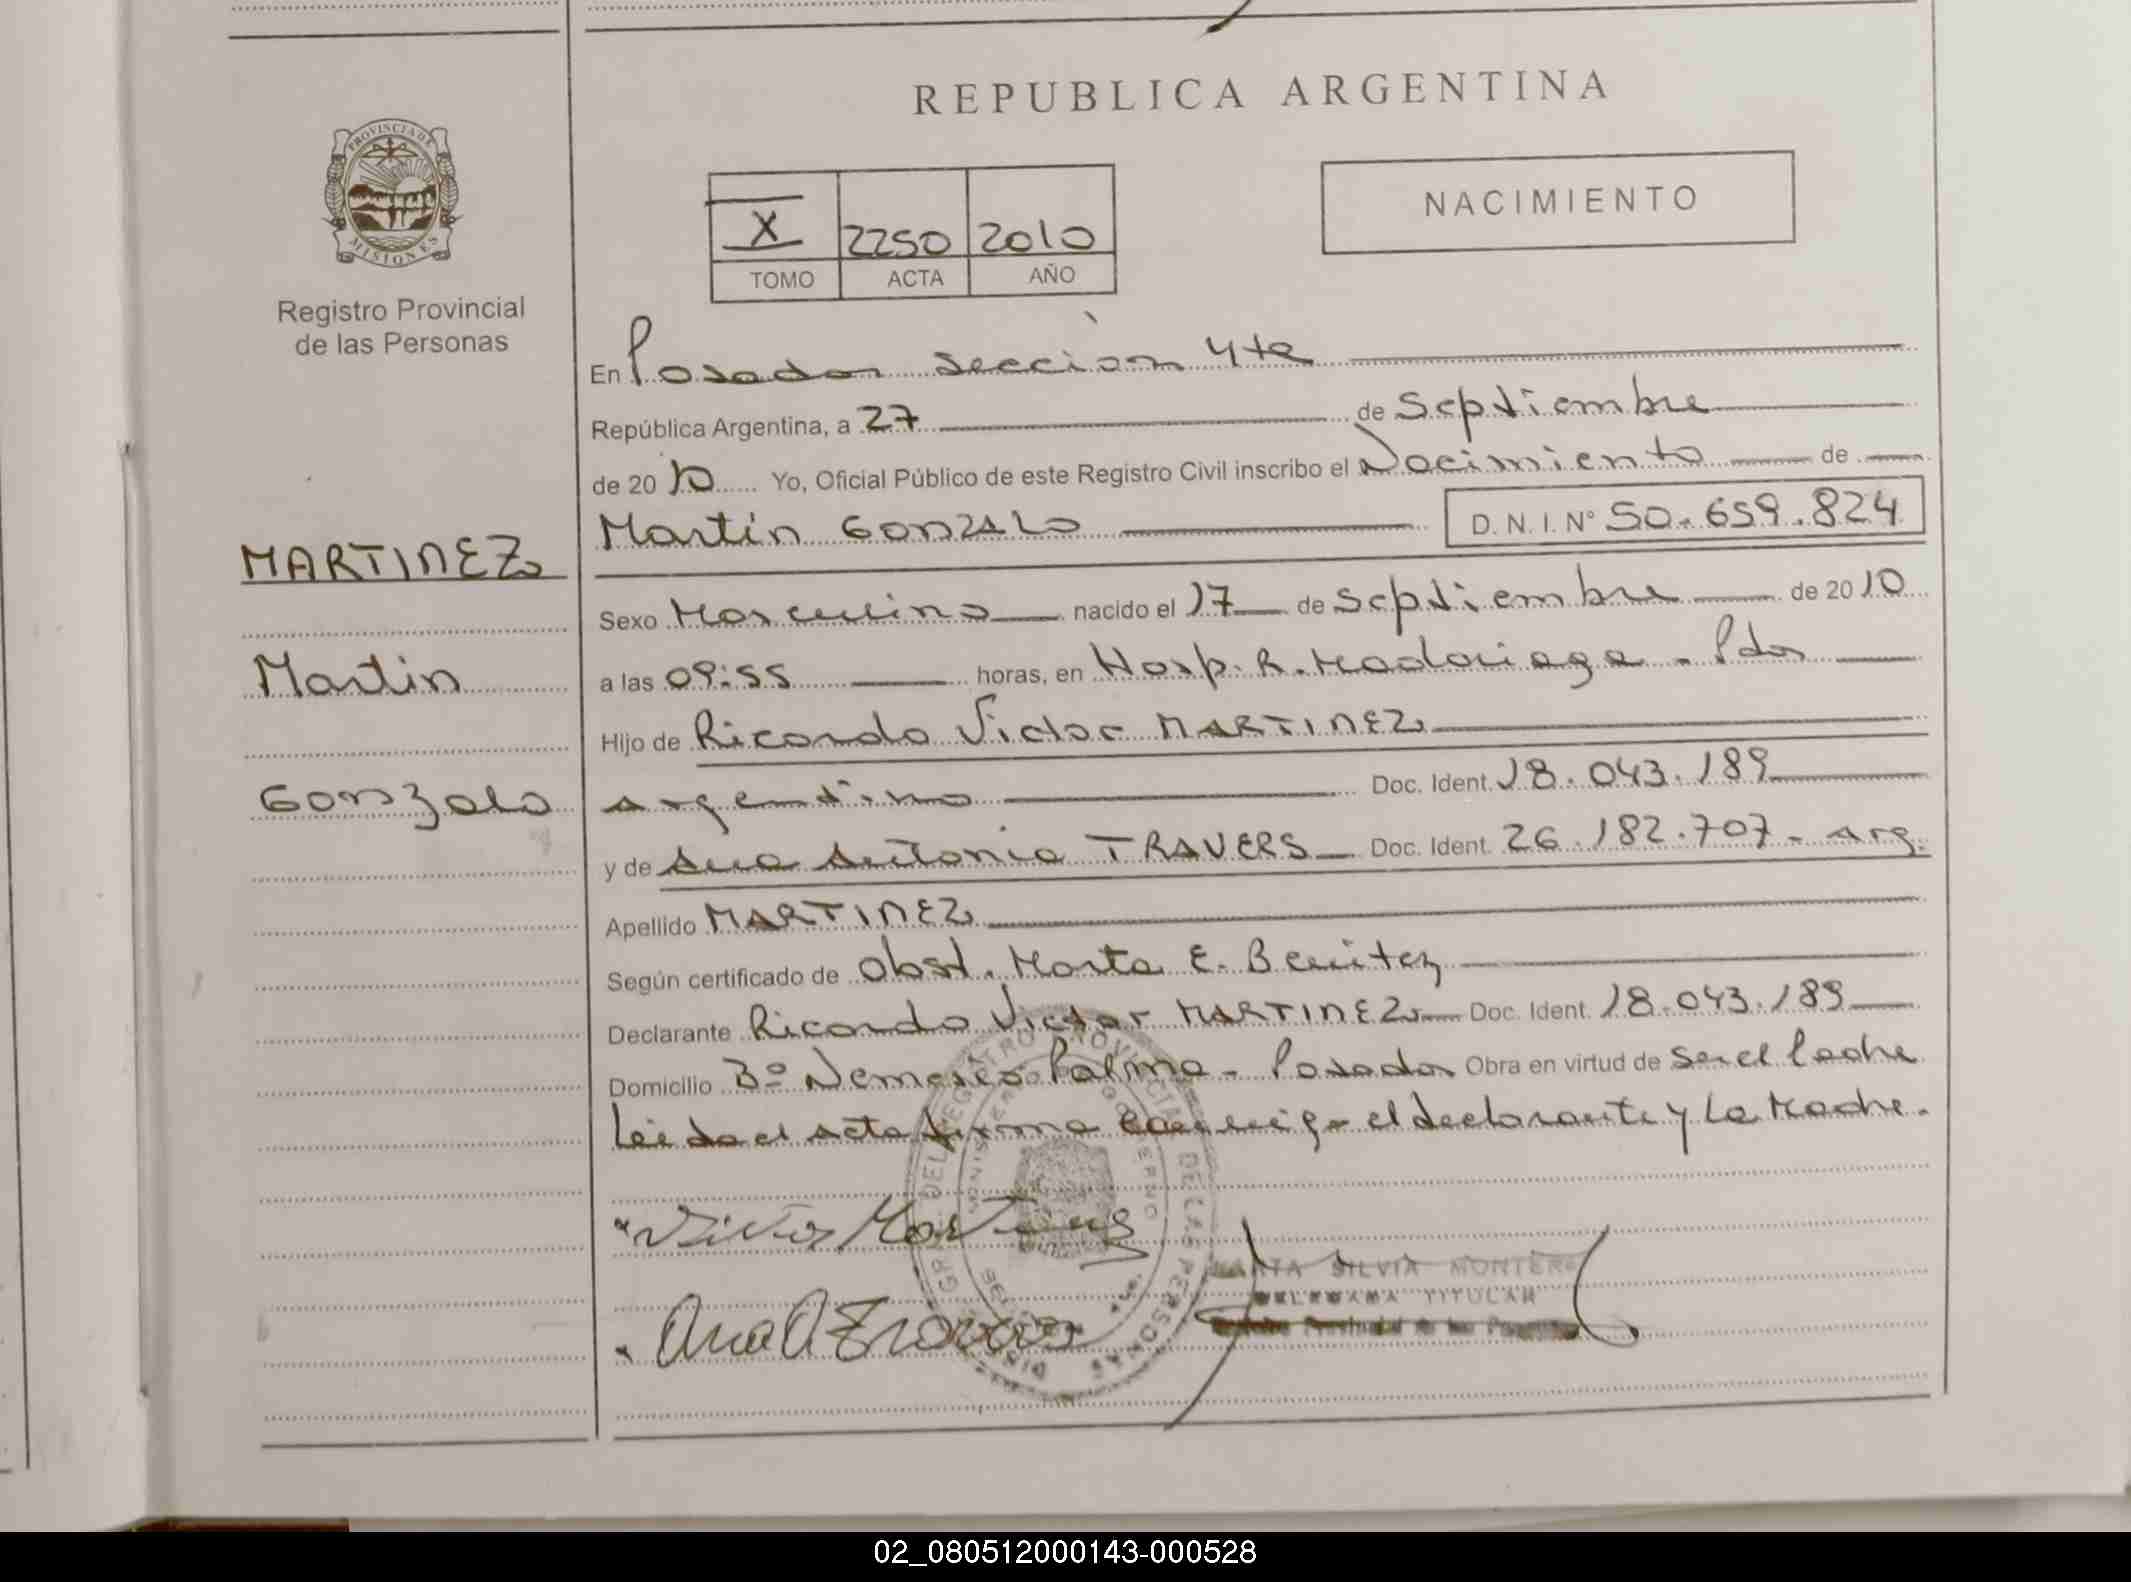 REPUBLICA ARGENTINA
PROVINCIA DE
MISIONES
Registro Provincial
de las Personas
X 2250 2010
TOMO ACTA AÑO
NACIMIENTO
En Posadas sección 4ta
República Argentina, a 27 de Septiembre
de 2010 Yo, Oficial Público de este Registro Civil inscribo el Nacimiento de
MARTINEZ
Martin
Gonzalo
Martín GONZALO D. N. I. N° 50.659.824
Sexo Masculino nacido el 17 de Septiembre de 2010
a las 09:55 horas, en Hosp. R. Madariaga - Pdas
Hijo de Ricardo Victor MARTINEZ
argentino Doc. Ident. 18.043.189
y de Ana Antonia TRAVERS Doc. Ident. 26.182.707 - arg.
Apellido MARTINEZ
Según certificado de Obst. Marta E. Benitez
Declarante Ricardo Victor MARTINEZ Doc. Ident. 18.043.189
Domicilio Bº Nemesio Palma - Posadas Obra en virtud de ser el Padre
Leída el acta firma conmigo el declarante y la Madre.
Victor Martinez
Ana A Travers
MARTA SILVIA MONTERO
DELEGADA TITULAR
Registro Provincial de las Personas
02_080512000143-000528